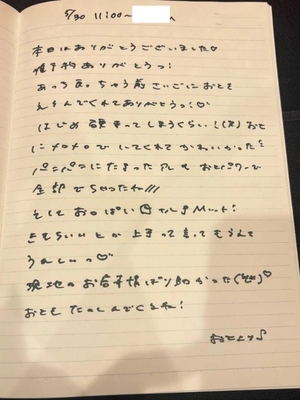 5/30 11:00~
本日はありがとうございました♡
ありがとうっ!
あっち戻っちゃう前さいごにおとを
えらんでくれてありがとうっ!♡
はじめ 固まってしまうくらい!(笑) おと
にメロメロで いてくれて かわいかった
パンパンにたまった おとパワーで
全部でちゃったね///
そして おっぱい
きもちいい とか 上手って言ってもらえて
うれしいっ♡
現地の
おとも たのしんでくるね!
おとより♪